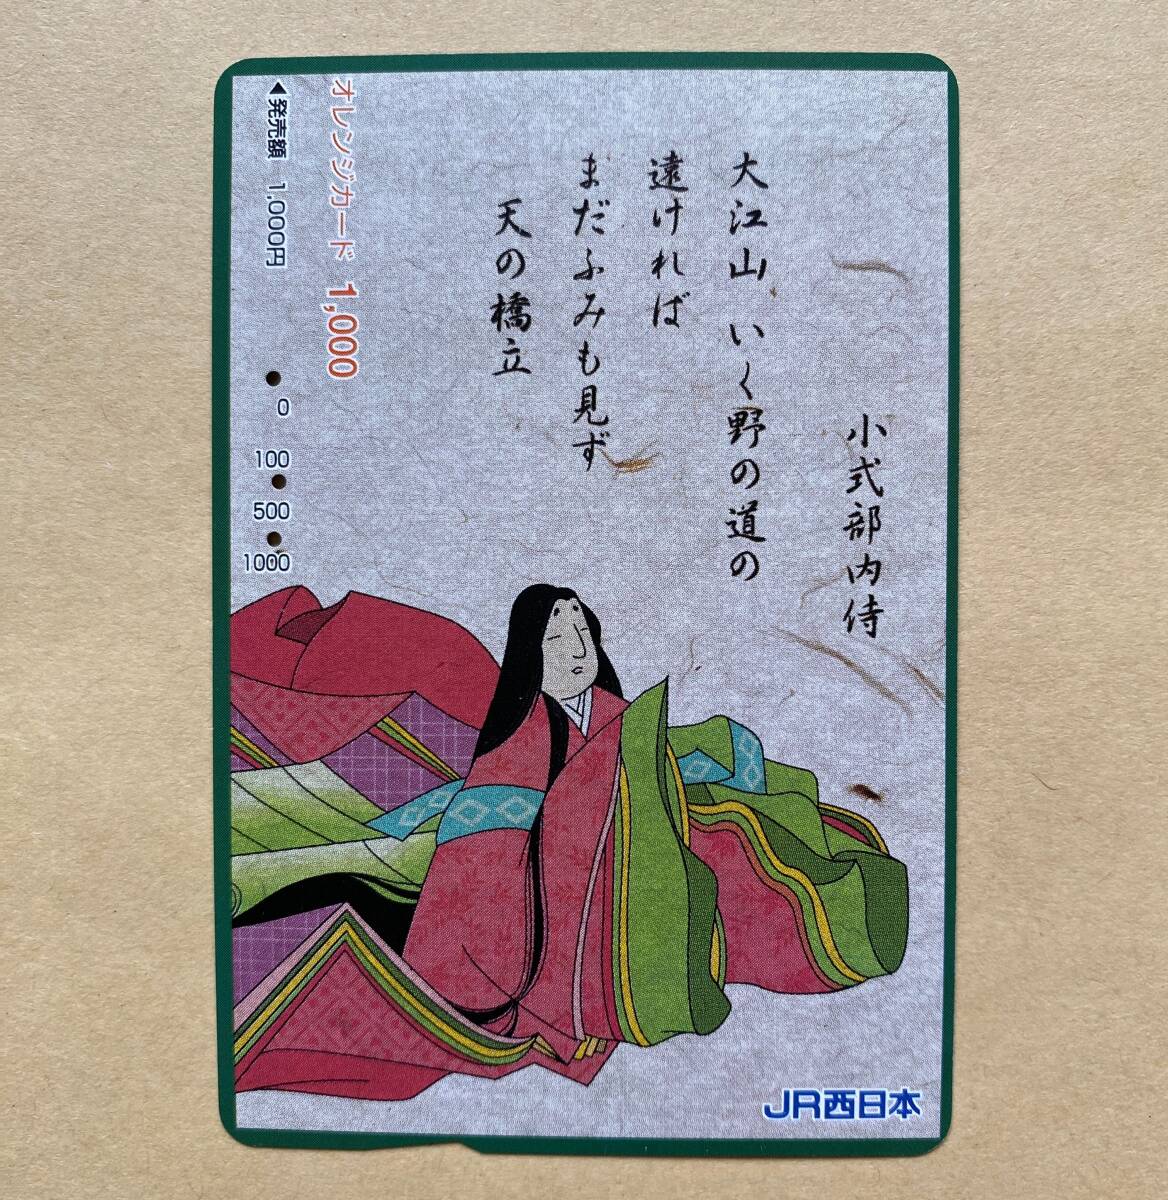 小式部内侍
大江山 いく野の道の
遠ければ
まだふみも見ず
天の橋立
オレンジカード 1,000
◀発売額 1,000円
0
100
500
1000
JR西日本